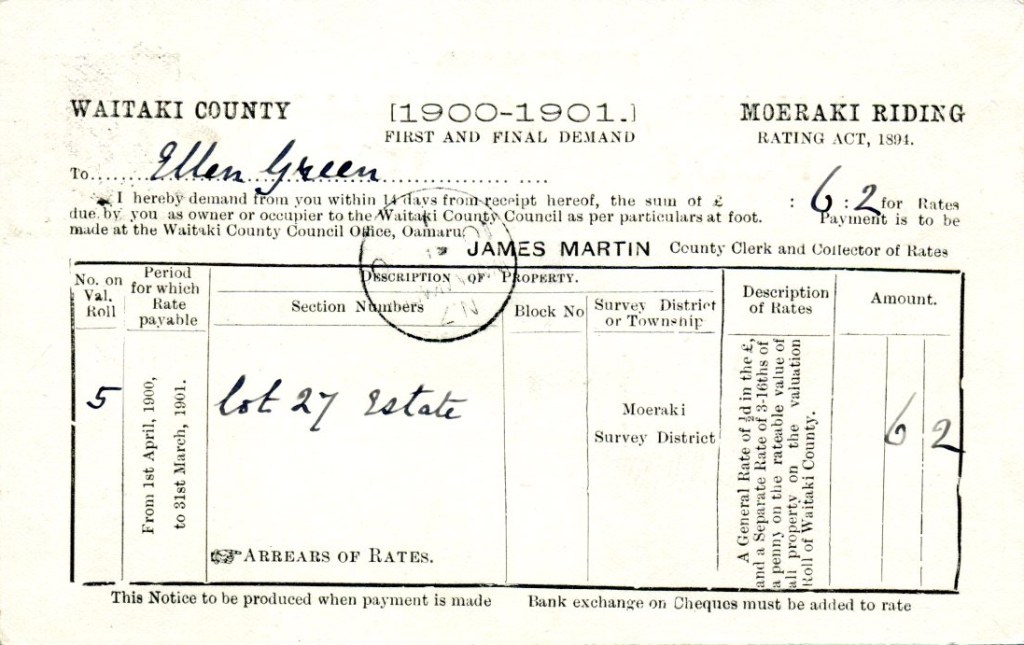 WAITAKI COUNTY [1900-1901.] MOERAKI RIDING
FIRST AND FINAL DEMAND RATING ACT, 1894.
To Ellen Green
I hereby demand from you within 14 days from receipt hereof, the sum of £ : 6 : 2 for Rates
due by you as owner or occupier to the Waitaki County Council as per particulars at foot. Payment is to be
made at the Waitaki County Council Office, Oamaru.
JAMES MARTIN County Clerk and Collector of Rates
No. on Val. Roll
Period for which Rate payable
DESCRIPTION OF PROPERTY.
Section Numbers
Block No
Survey District or Township
Description of Rates
Amount.
5
From 1st April, 1900,
to 31st March, 1901.
Lot 27 Estate
Moeraki
Survey District
A General Rate of ½d in the £,
and a Separate Rate of 3-16ths of
a penny on the rateable value of
all property on the valuation
Roll of Waitaki County.
6 2
☞ ARREARS OF RATES.
This Notice to be produced when payment is made Bank exchange on Cheques must be added to rate